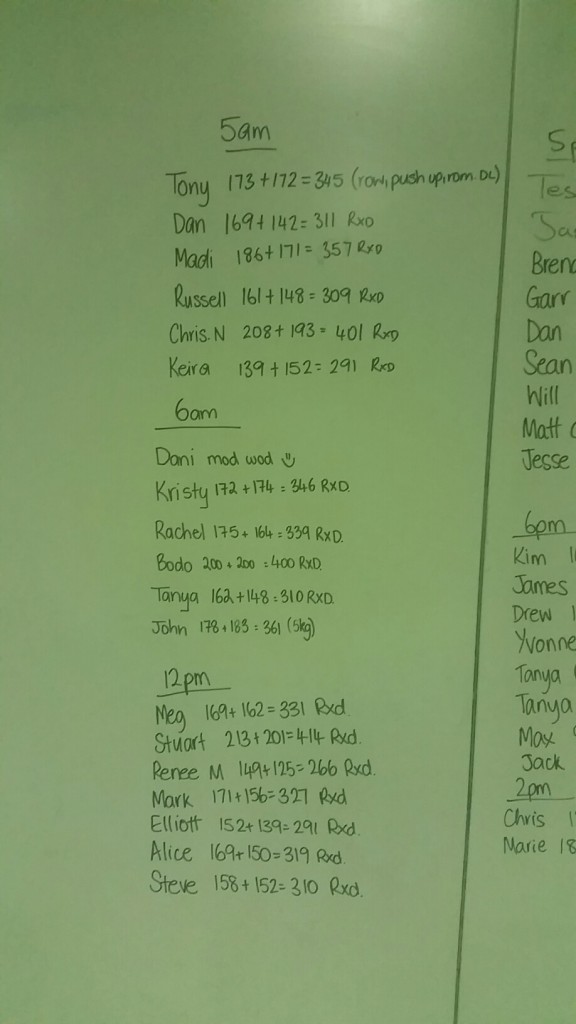 5am
Tony 173+172=345 (row, push up, rom. DL)
Dan 169+142=311 RxD
Madi 186+171=357 RxD
Russell 161+148=309 RxD
Chris.N 208+193=401 RxD
Keira 139+152=291 RxD
6am
Dani mod wod
Kristy 172+174=346 RxD.
Rachel 175+164=339 RxD.
Bodo 200+200=400 RxD.
Tanya 162+148=310 RxD.
John 178+183=361 (5kg)
12pm
Meg 169+162=331 Rxd.
Stuart 213+201=414 Rxd.
Renee M 149+125=266 Rxd.
Mark 171+156=327 Rxd
Elliott 152+139=291 Rxd.
Alice 169+150=319 Rxd.
Steve 158+152=310 Rxd.
5p
Tes
Ja
Bren
Garr
Dan
Sean
Will
Matt
Jesse
6pm
Kim 1
James
Drew 1
Yvonne
Tanya
Tanya
Max
Jack
2pm
Chris 1
Marie 18